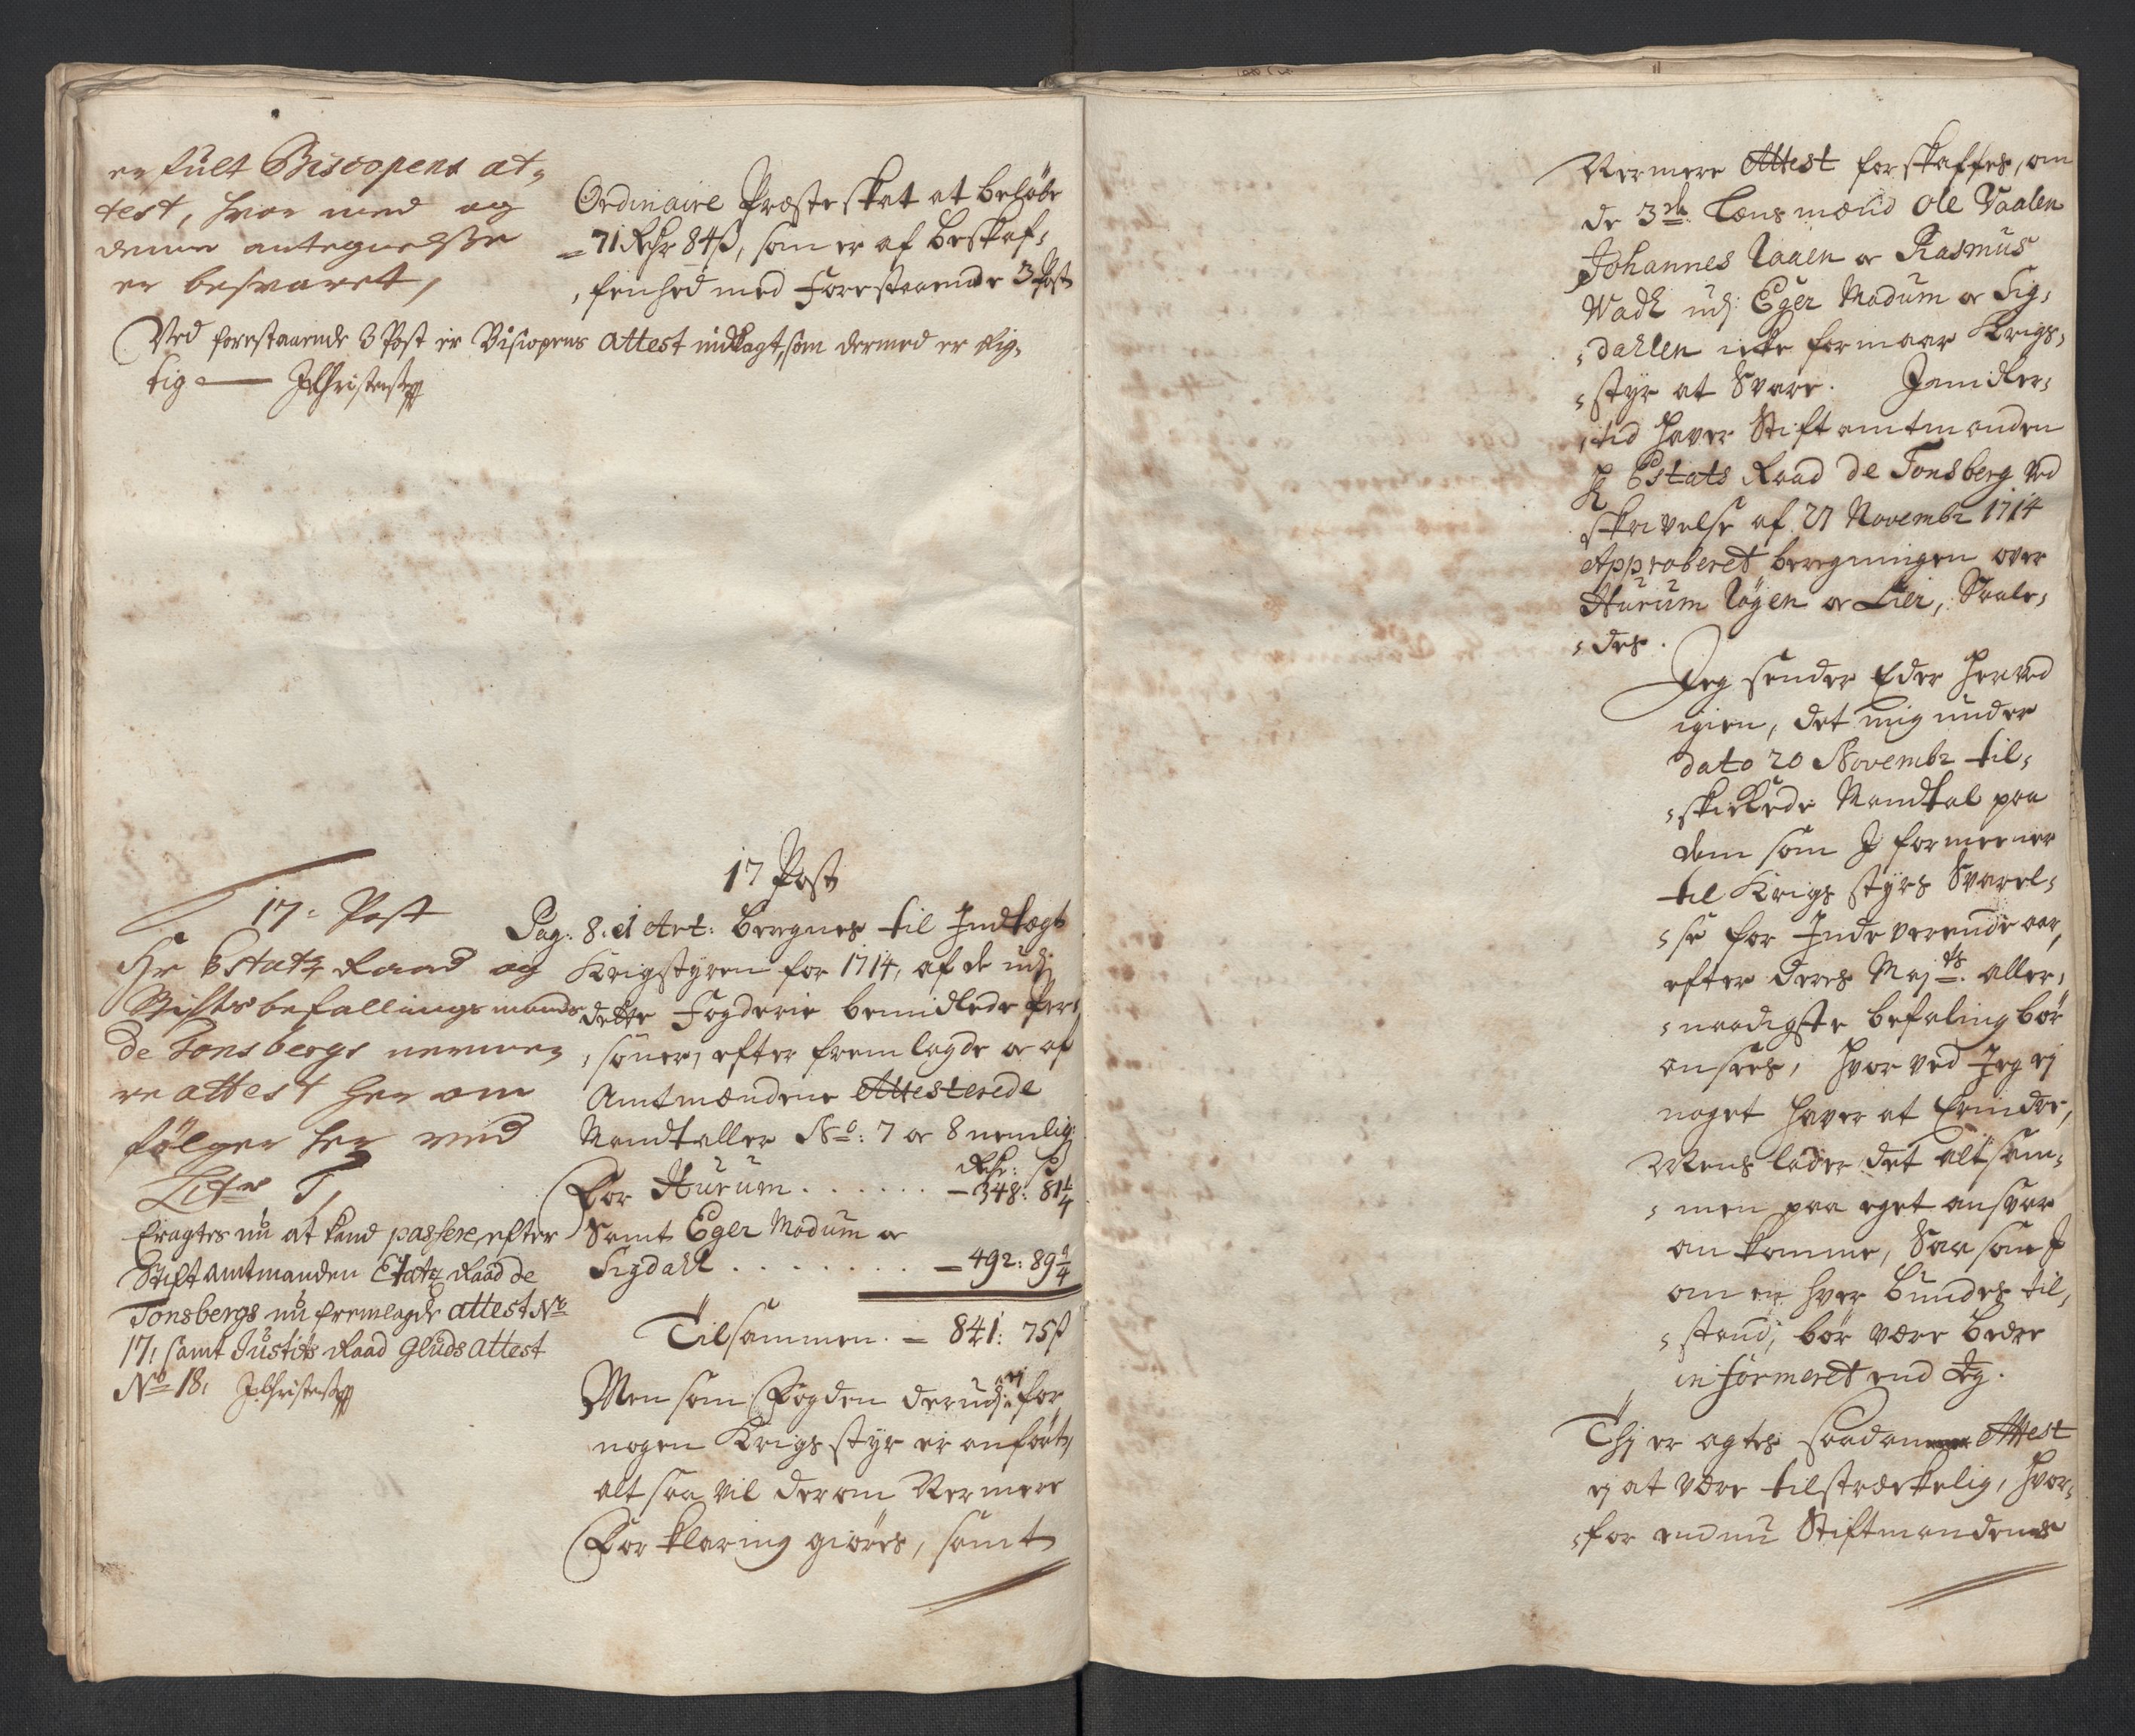 er fult Biscopens at-
test, hvor med og
denne antegnelsse
er besvaret,
Ordinaire Præsteskat at beløbe
= 71 Rdr 84 ß, som er af beskaf-
fenhed med Forestaaende 3 Post
Ved forestaaende 3 Post er Biscopens attest indlagt, som dermed er Rig-
tig
17: Post
Hr Estatz Raad og
Stiftsbefallingsmands
de Tonsbergs nerme-
re attest her om
følger her ved
Litr T,
Eragtes nu at kand passere, efter
Stiftamtmanden Etatz Raad de
Tonsbergs nu fremlagde attest No
17, samt Justits Raad Gluds attest
No 18,
17 Post
Pag: 8: Art: beregnes til Indtægt
Krigstyren for 1714, af de udj
dette Fogderie bemidlede Per-
soner, efter fremlagde og af
Amtmændene Attesterede
Mandtaller No: 7 og 8 nemlig:
Rdr: ß
For Hurum . . . . . . — 348: 81 1/4
Samt Eger Modum og
Sigdahl . . . . . . . — 492: 89 3/4
Tilsammen. — 841: 75 ß
Men som Fogden derudj ej for
nogen Krigsstyr er anført,
alt saa vil derom Nermere
Forklaring giøres, samt
Nermere Attest forskaffes, om
de 3de Lænsmænd Ole Vaalen
Johannes Raaen og Rasmus
Wadt udj Eger Modum og Sig-
dahlen icke formaar Krigs-
styr at Svare. Jmidler-
tid haver Stiftamtmanden
H Estats Raad de Tonsberg ved
skrivelse af 27 Novembr 1714
Approberet beregningen over
Hurum Røgen og Lier, Saale-
des.
Jeg sender Eder herved
igien, det mig under
dato 20 Novembr til-
skickede Mandtal paa
dem som I formeener
til Krigs styrs Svarel-
se for Indeverende aar,
efter Deres Majts aller-
naadigste befaling bør
ansees, hvor ved Jeg ej
noget haver at Erindre,
Mens lader det altsam-
men paa eget ansvar
ankomme, Saasom I
om en hver bundes til-
stand, bør være bedre
informeret end Jeg.
Thj er agtes saadan Attest
ej at være tilstrækkelig, hvor-
for endnu Stiftmandens